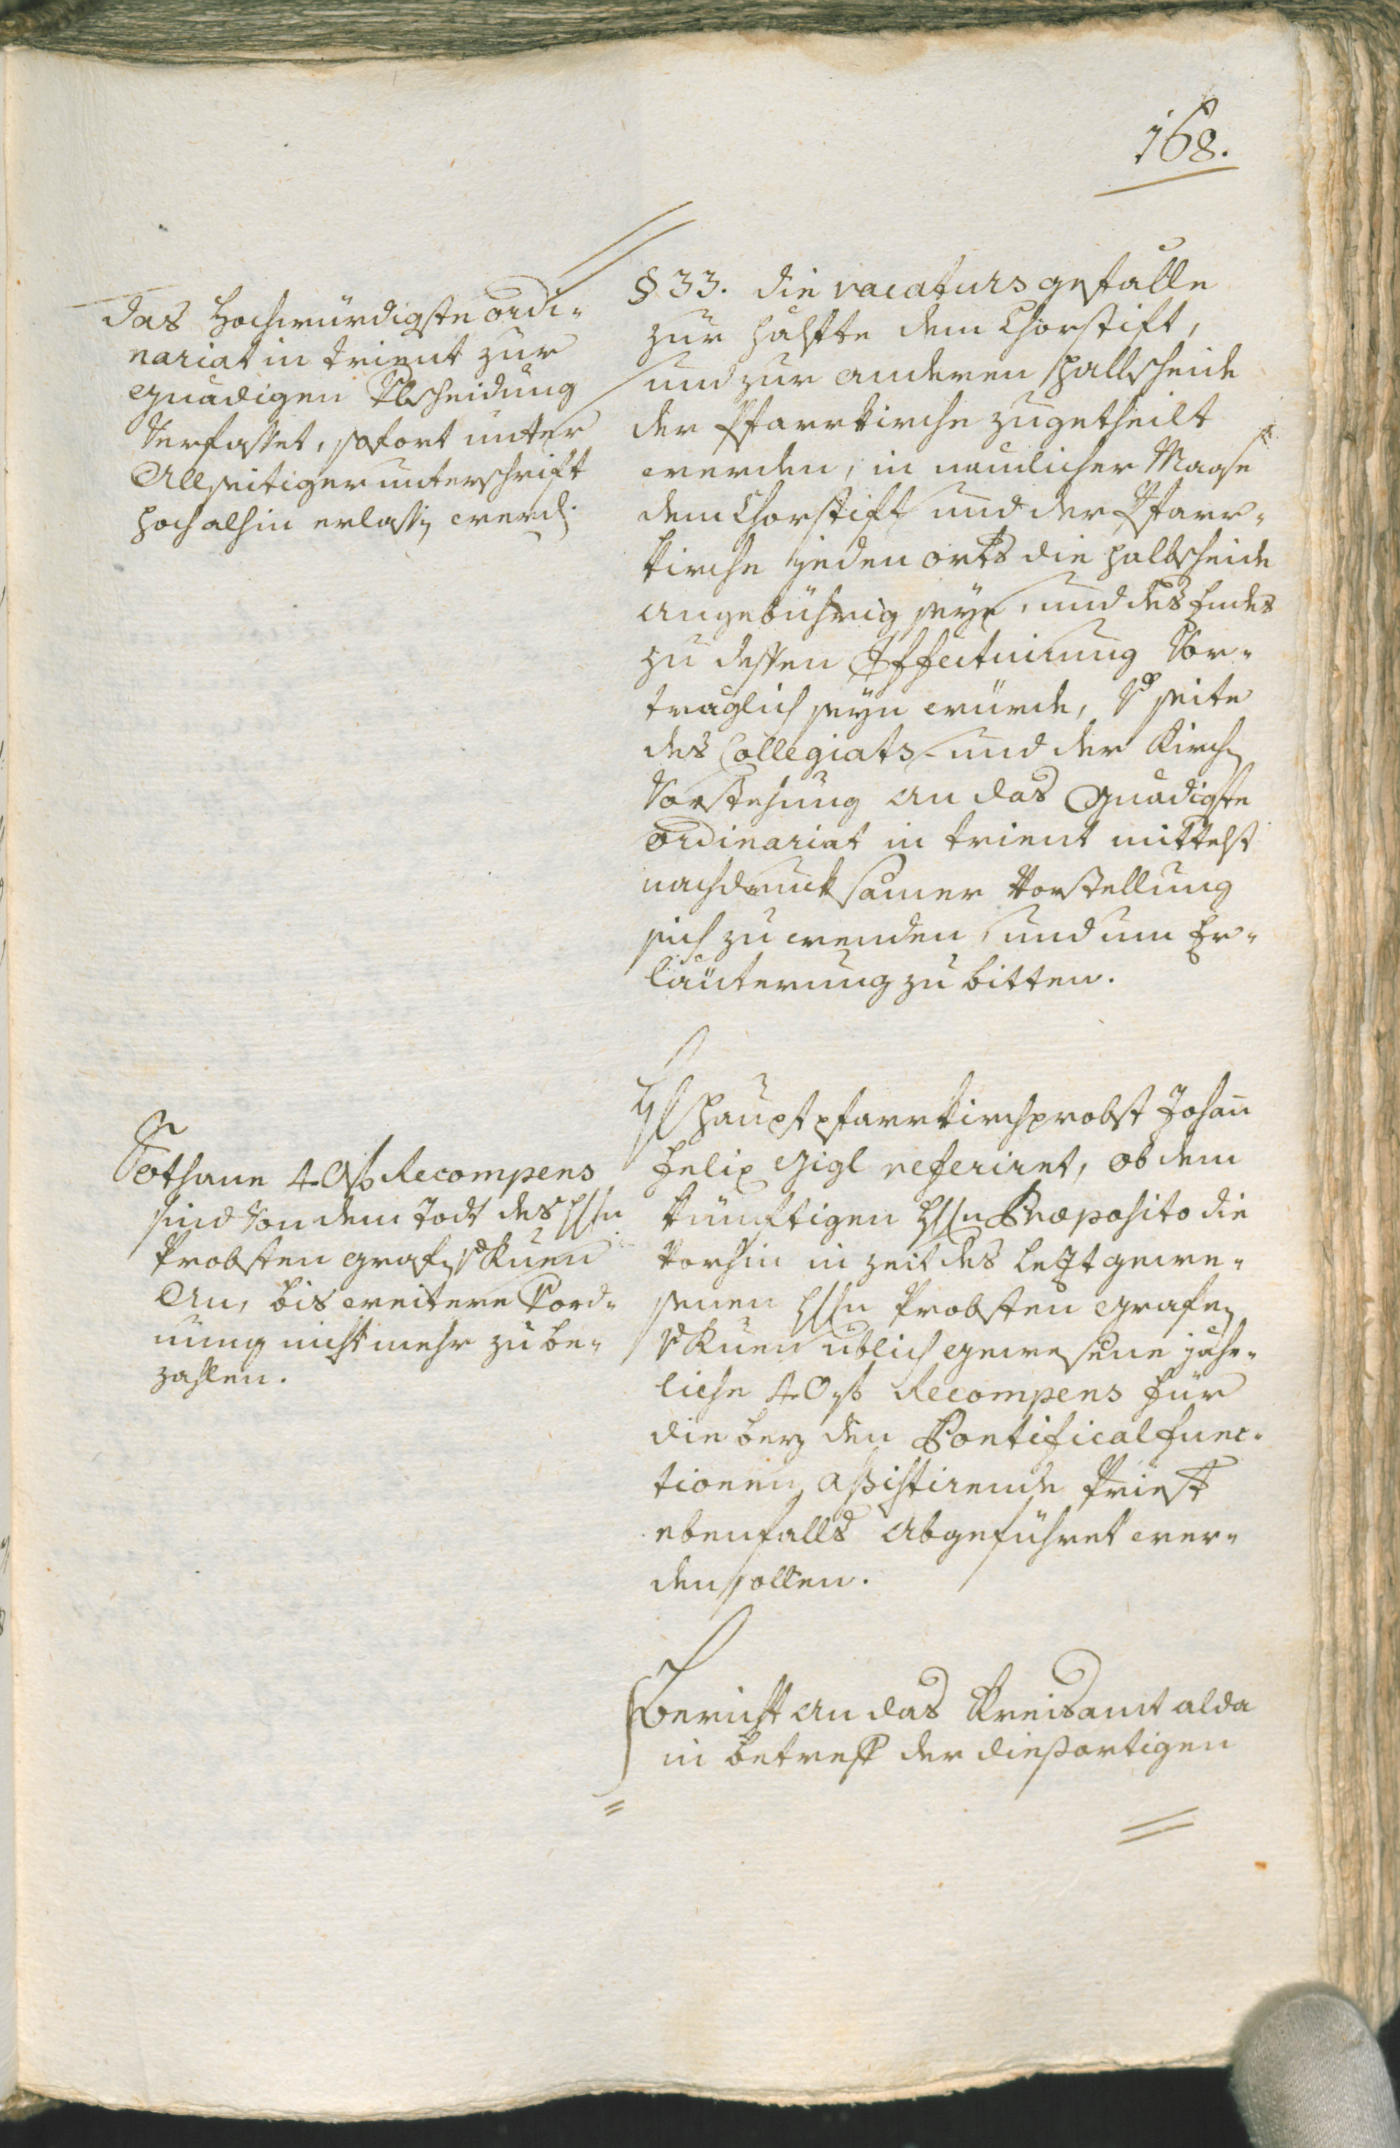 168.
das Hochwürdigste ordi-
nariat in trient zur
gnädigen Abscheidung
verfasset, sofort unter
Allseitiger unterschrift
hochalhin erlassen werden.
§ 33. die vacatursgefälle
zur hälfte dem Chorstift,
und zur anderen Hallscheide
der Pfarrkirche zugetheilt
werden, in naulicher Maase
dem Chorstift und der Pfarr-
kirche jeden orts die halbscheide
angebührig seye, und des Endes
zu dessen Effectuirung Vor-
träglich seyn würde, von seite
des Collegiats und der Kirchen
Vorstehung an das Gnädigste
ordinariat in trient mittelst
nachdrucksamer Vorstellung
sich zu wenden, und um Er-
läuterung zu bitten.
Sothane 40 f Recompens
sind von dem Todt des Herrn
Probsten grafen v Kuen
An, bis weitere Verord-
nung nicht mehr zu be-
zahlen.
H Hauptpfarrkirchprobst Johann
Felix Gigl referiret, ob dem
künftigen Herrn Præposito die
Vorhin in zeit des letztgewe-
senen Herrn Probsten Grafen
v Kuen üblich gewesene jähr-
liche 40 f Recompens für
die bey den Pontificalfunc-
tionen assistirende Priester
ebenfalls abgeführet wer-
den sollen.
Bericht an das Kreisamt alda
in betreff der diesortigen